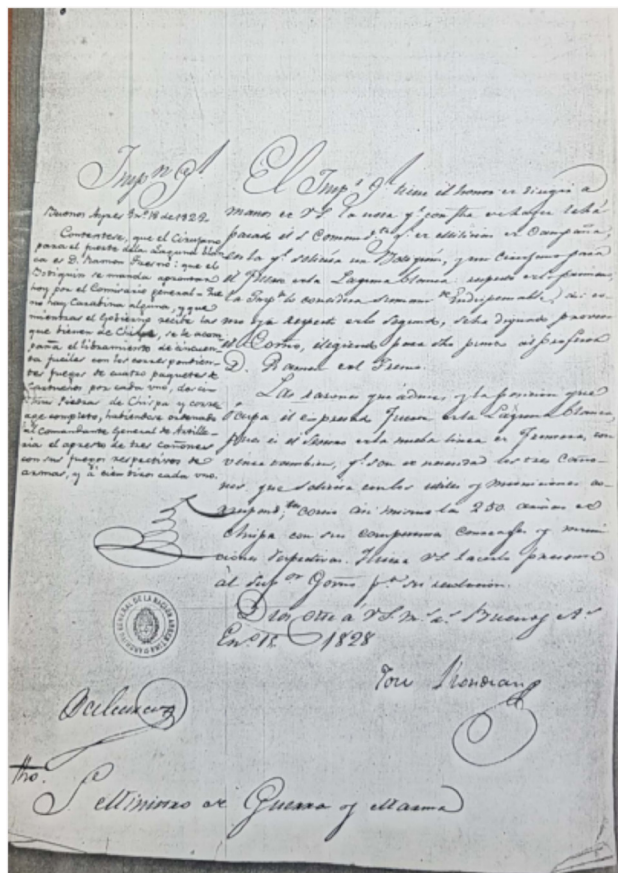 Imp.n Gl
Buenos Ayres En.o 18 de 1828.
Contestese, que el Cirujano
para el puerto de la Laguna blan
ca es D. Ramon del Fresno: que el
Botiquin se manda aprontar
hoy por el Comisario general = Que
no hay Carabina alguna, y que
mientras el Gobierno recibe las
que vienen de Chile, se le acom
paña el libramiento de cincuen
ta fusiles con los correspondien
tes juegos de cuatro paquetes de
cartuchos por cada uno, doscien
tas piedras de chispa y correa
ge completo, habiendose ordenado
al Comandante General de Artille
ria el apresto de tres cañones
con sus juegos respectivos de
armas, y á cien tiros cada uno.
Balcarce
El Imp.r Gl tiene el honor de dirigir á
manos de VS la nota q.e con fha de ha
pasado el S Comand.te de Milicias de Campaña,
en la q.e solicita un Botiquin, y un Cirujano para
el Fuerte de la Laguna blanca: respecto de lo primero,
la Insp.n lo considera sumam.te indispensable, asi co
mo ya respecto de lo segundo,
D. Ramon del Fresno.
Las razones que aduce, y la posicion que
ocupa el expresado Fuerte de la Laguna blanca,
linea de Fronteras, con
vencen tambien, q.e son de necesidad los tres Caño
nes, que solicita con los utiles y municiones co
rrespond.tes como asi mismo las 250 armas de
chispa con sus competentes correages y muni
ciones respectivas. VS hacerlo presente
al Sup.or Gov.no p.a su resolucion.
Dios gue á VS. m.s a.s Buenos A.s
En.o 18 1828
José Rondeau
S Ministro de Guerra y Marina
ARCHIVO GENERAL DE LA NACION ARGENTINA